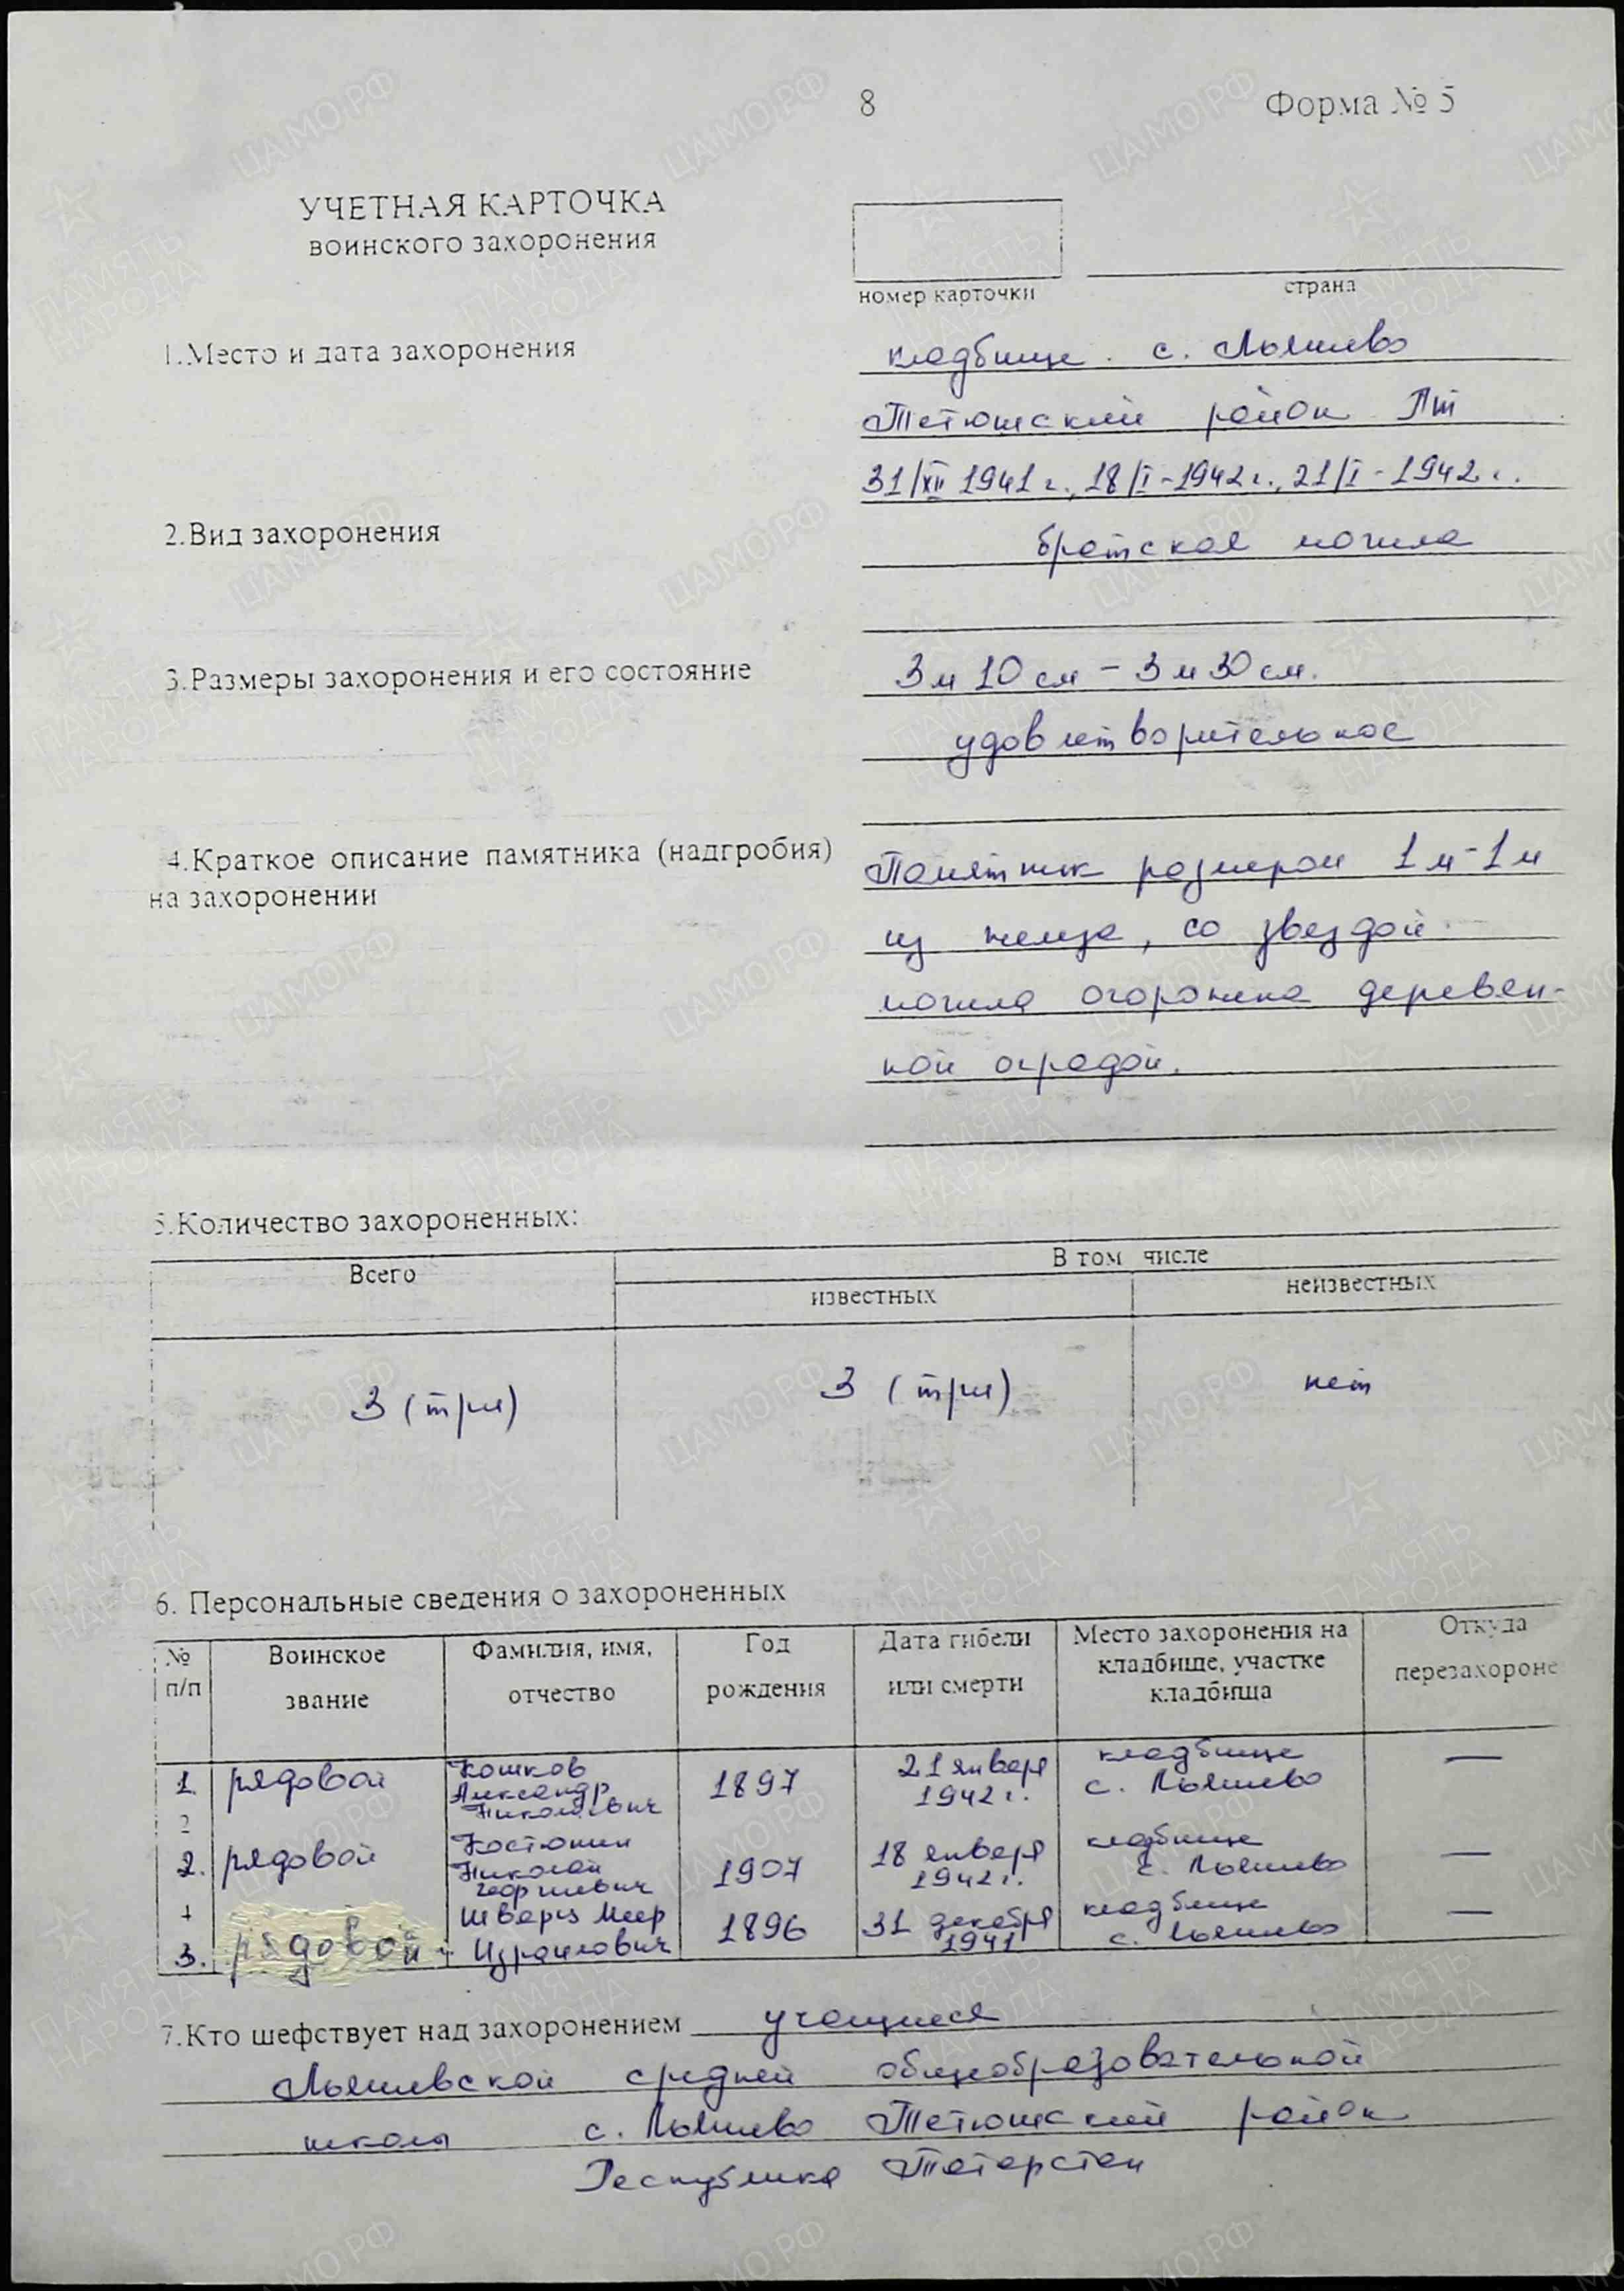 8
Форма № 5
УЧЕТНАЯ КАРТОЧКА
воинского захоронения
номер карточки
страна
1.Место и дата захоронения
кладбище. с. Льяшево
Тетюшский район РТ
31/XII 1941 г., 18/I-1942 г., 21/I-1942 г.
2.Вид захоронения
братская могила
3.Размеры захоронения и его состояние
3 м 10 см - 3 м 30 см.
удовлетворительное
4.Краткое описание памятника (надгробия)
на захоронении
Памятник размером 1 м - 1 м
из железа, со звездой.
могила огорожена деревян-
ной оградой.
5.Количество захороненных:
Всего
В том числе
известных
неизвестных
3 (три)
3 (три)
нет
6. Персональные сведения о захороненных
№ п/п
Воинское звание
Фамилия, имя, отчество
Год рождения
Дата гибели или смерти
Место захоронения на кладбище, участке кладбища
Откуда перезахороне
1. рядовой Кошков Александр Николаевич 1897 21 января 1942 г. кладбище с. Льяшево —
2
2. рядовой Костюнин Николай Георгиевич 1907 18 января 1942 г. кладбище с. Льяшево —
4
3. рядовой Шварц Меер Израилович 1896 31 декабря 1941 кладбище с. Льяшево —
7.Кто шефствует над захоронением учащиеся
Льяшевской средней общеобразовательной
школы с. Льяшево Тетюшский район
Республика Татарстан
ПАМЯТЬ НАРОДА
ЦАМО.РФ